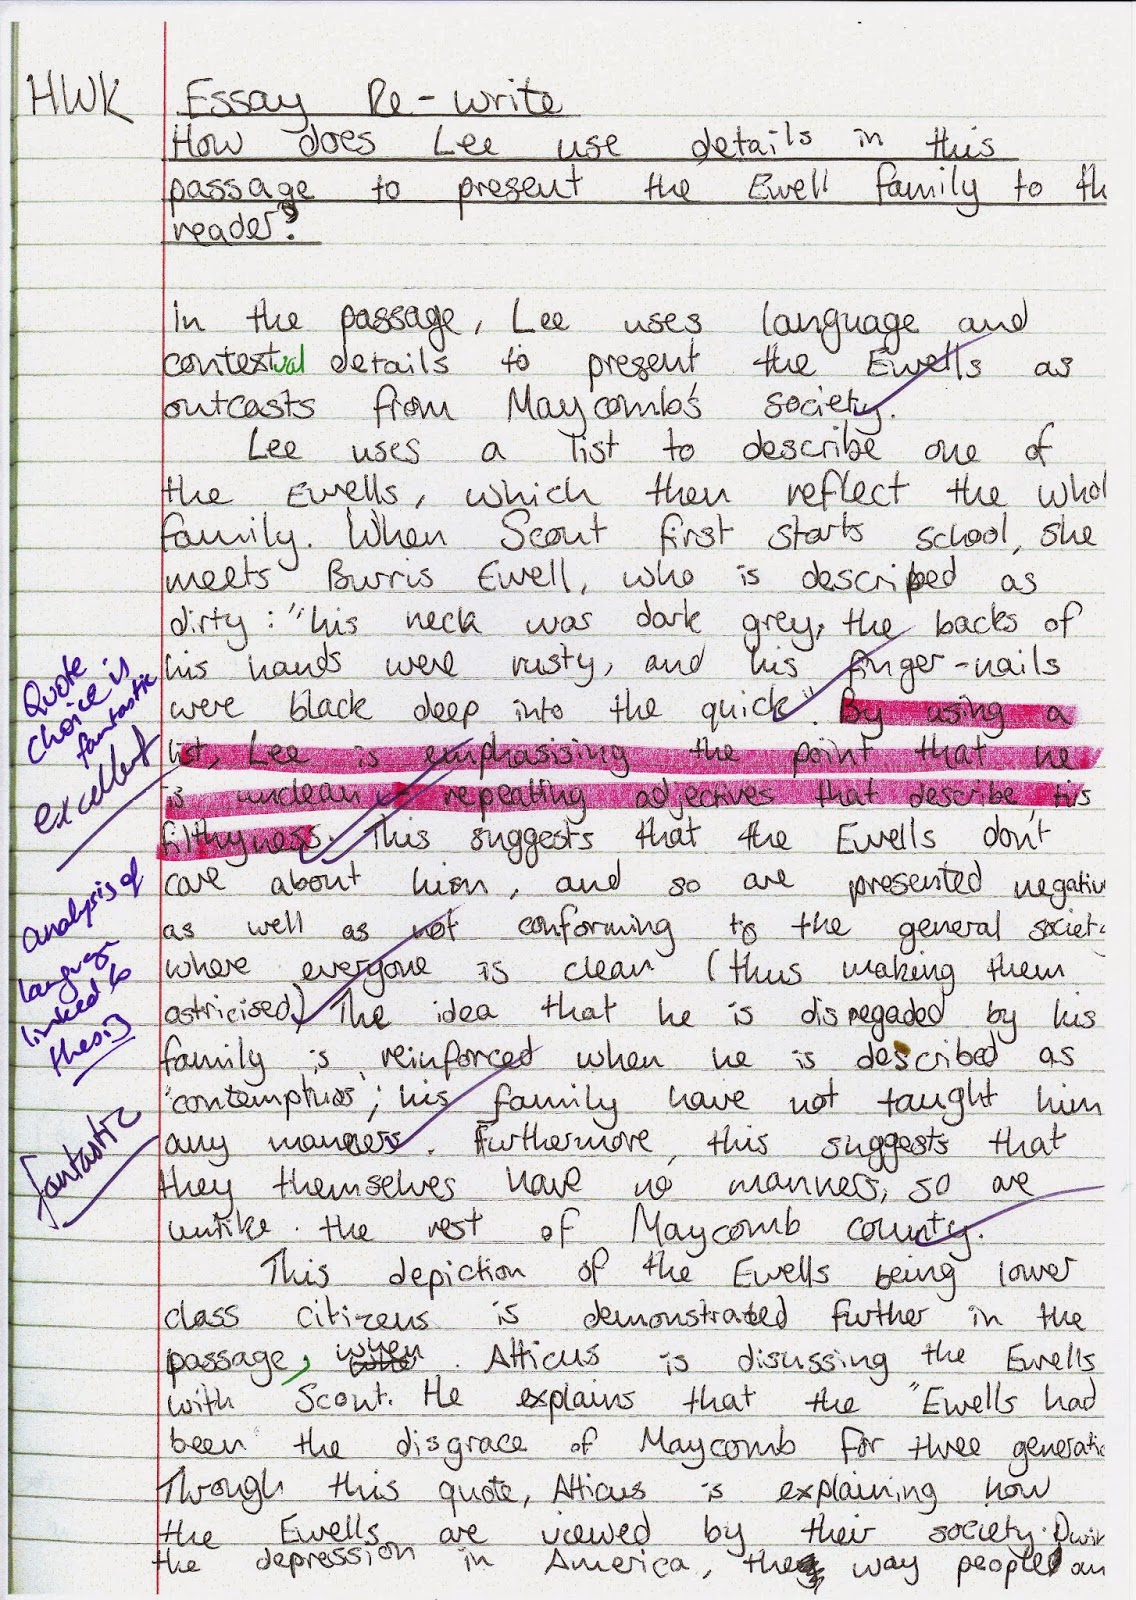 HWK
Essay Re-write
How does Lee use details in this
passage to present the Ewell family to th
reader?
In the passage, Lee uses language and
contextual details to present the Ewells as
outcasts from Maycomb's society.
Lee uses a list to describe one of
the Ewells, which then reflect the whol
family. When Scout first starts school, she
meets Burris Ewell, who is described as
dirty: "his neck was dark grey, the backs of
his hands were rusty, and his finger-nails
were black deep into the quick". By using a
list, Lee is emphasising the point that he
is unclean - repeating adjectives that describe his
filthyness. This suggests that the Ewells don't
care about him, and so are presented negativ
as well as not conforming to the general societ
where everyone is clean (thus making them
astricised). The idea that he is disregaded by his
family is reinforced when he is described as
'contemptuos'; his family have not taught him
any manners. Furthermore, this suggests that
they themselves have no manners, so are
unlike the rest of Maycomb county.
This depiction of the Ewells being lower
class citizens is demonstrated further in the
passage, when Atticus is discussing the Ewells
with Scout. He explains that the "Ewells had
been" the disgrace of Maycomb for three generatio
Through this quote, Atticus is explaining how
the Ewells are viewed by their society. Durin
the depression in America, the way people an
Quote
choice is
fantastic
excellent
analysis of
language
linked to
thesis
fantastic